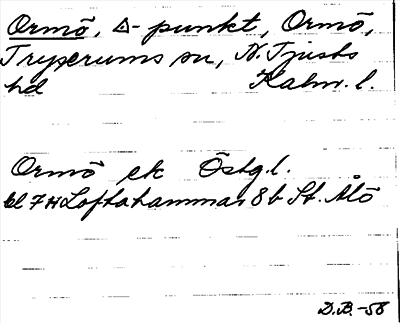 Ormö, △-punkt, Ormö,
Tryserums sn, N. Tjusts
hd Kalm. l.
Ormö ek Östg.l.
bl 7H Loftahammar 8b St. Ålö
D.B.-58